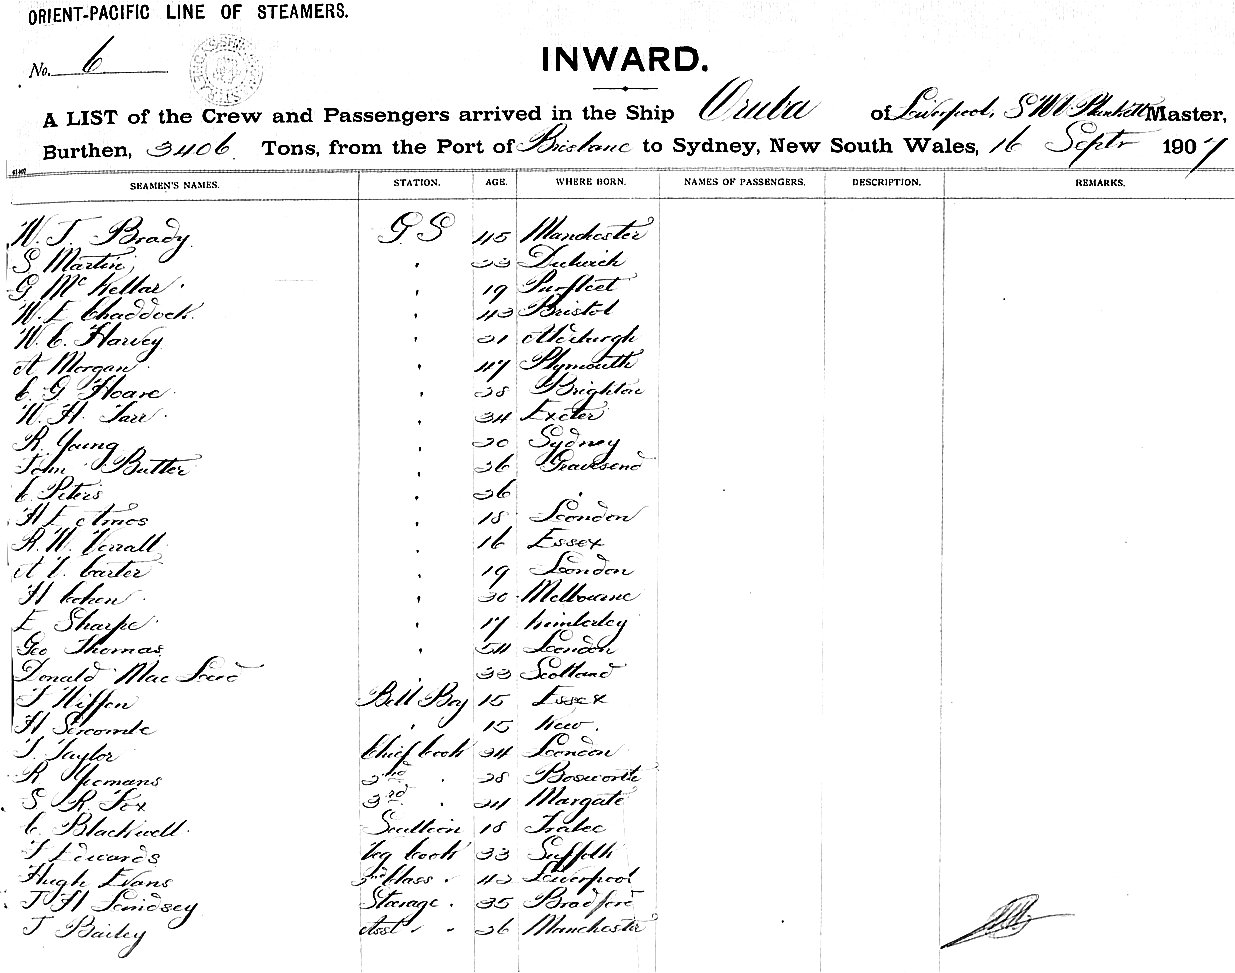 ORIENT-PACIFIC LINE OF STEAMERS.
No. 6
INWARD.
A LIST of the Crew and Passengers arrived in the Ship Oruba of Liverpool, Master,
Burthen, 3406 Tons, from the Port of Brisbane to Sydney, New South Wales, 16 Septr 1907
SEAMEN'S NAMES. STATION. AGE. WHERE BORN. NAMES OF PASSENGERS. DESCRIPTION. REMARKS.
W. J. Brady GS 45 Manchester
S Martin " 33 Dulwich
G McKellar " 19 Purfleet
W. E Chaddock " 43 Bristol
W. C. Harvey " 31
A Morgan " 47 Plymouth
C. G. Hoare " 28 Brighton
W. H. Tarr " 34 Exeter
R. Young " 20 Sydney
John Butler " 26 Gravesend
C Peters " 26 "
H E Amos " 18 London
R. W. Verrall " 16 Essex
A. V. Carter " 19 London
H Cohen " 30 Melbourne
E Sharpe " 17 Kimberley
Geo Thomas " 54 London
Donald Mac Leod " 33 Scotland
Bell Boy 15 Essex
H Sercombe " 15 Kew.
T Taylor Chief Cook 34 London
R Yeomans 2nd " 28 Bosworth
S R Fox 3rd " 24 Margate
C Blackwell Scullion 18 Tralee
T Edwards Veg Cook 33 Suffolk
Hugh Evans 3rd Class " 43 Liverpool
J H Lindsey Steerage " 35 Bradford
J Bailey Asst " " 26 Manchester